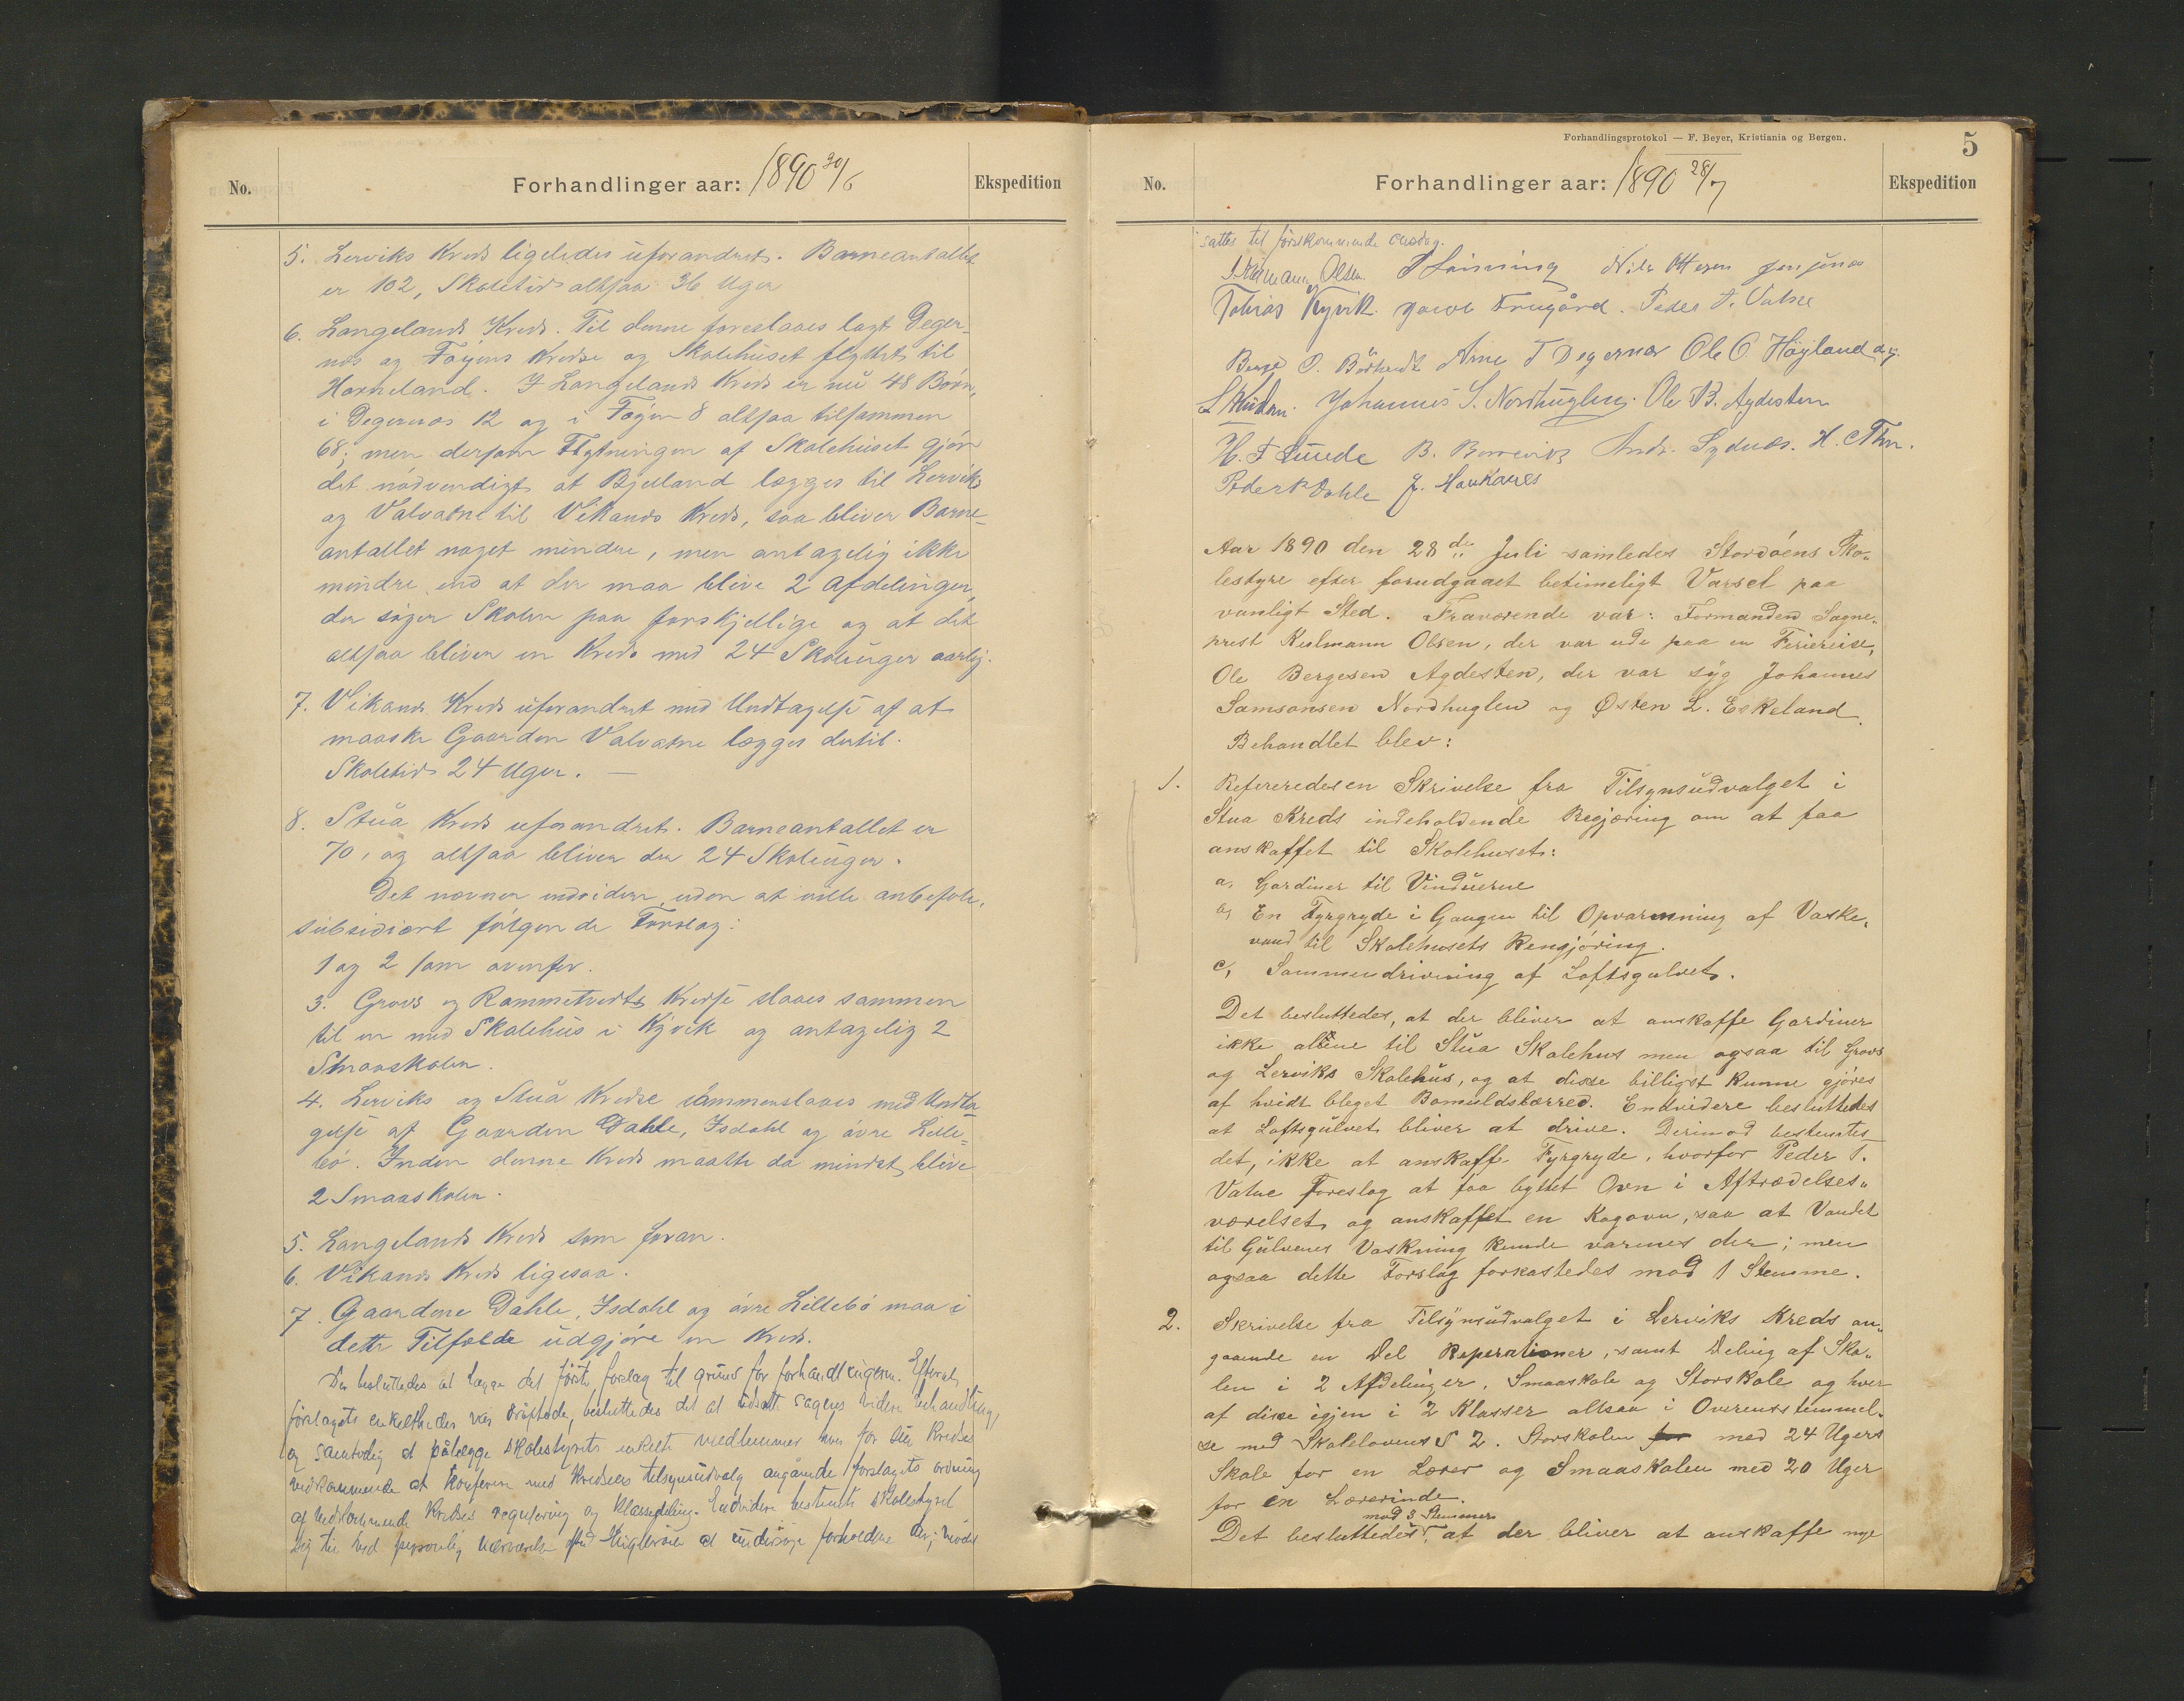 No.
Forhandlinger aar: 1890 30/6
Ekspedition
5. Lerviks Kreds ligeledes uforandret. Barneantallet
er 102, Skoletid altsaa 36 Uger
6. Langelands Kreds. Til denne foreslaaes lagt Deger-
næs og Føyens Kredse og Skolehuset flyttet til
Horneland. I Langelands Kreds er nu 48 Børn,
i Degernæs 12 og i Føyen 8 altsaa tilsammen
68; men dersom Flytningen af Skolehuset gjør
det nødvendigt at Bjelland lægges til Lerviks
og Valvatne til Vikanes Kreds, saa bliver Barne-
antallet noget mindre, men antagelig ikke
mindre end at der maa blive 2 Afdelinger,
der søger Skolen paa forskjellige og at det
altsaa bliver en Kreds med 24 Skoleuger aarlig.
7. Vikanes Kreds uforandret med Undtagelse af at
maaske Gaarden Valvatne lægges dertil.
Skoletid 24 Uger. —
8. Stua Kreds uforandret. Barneantallet er
70, og altsaa bliver der 24 Skoleuger.
Det nævner endvidere, uden at ville anbefale,
subsidiært følgende Forslag:
1 og 2 som ovenfor.
3. Grovs og Rommetvedts Kredse slaaes sammen
til en med Skolehus i Kyvik og antagelig 2
Smaaskoler.
4. Lerviks og Stua Kredse sammenslaaes med Undta
gelse af Gaarden Dahle, Isdahl og øvre Lille-
bø. Inden denne Kreds maatte da mindst blive
2 Smaaskoler.
5. Langelands Kreds som foran.
6. Vikanes Kreds ligesaa.
7. Gaardene Dahle, Isdahl og øvre Lillebø maa i
dette Tilfælde udgjøre en Kreds.
Der besluttedes at lægge det første forslag til grund for forhandlingerne. Efterat
forslagets enkeltheder var drøftede, besluttedes det at udsætte sagens videre behandling,
og samtidig at pålægge skolestyrets enkelte medlemmer hver for sin Kreds
vedkommende at konferere med Kredsens tilsynsudvalg angående forslagets ordning
af vedkommende Kredses regulering og klassedeling. Endvidere bestemte skolestyret
sig til ved personlig nærværelse på Hugløen at undersøge forholdene der; mødet
Forhandlingsprotokol — F. Beyer, Kristiania og Bergen.
5
No.
Forhandlinger aar: 1890 28/7
Ekspedition
sattes til førstkommende onsdag.
Kulmann Olsen. Nils Ottesen Jensanæs
Tobias Kyvik. Peder T. Vatne
Arne T Degernæs Ole O. Høyland
Johannes S. Nordhuglen. Ole B. Agdesten
H. T. Lunde Andr. Sydnæs.
Peder Dahle J. Haukanes
Aar 1890 den 28de Juli samledes Stordøens Sko-
lestyre efter forudgaaet betimeligt Varsel paa
vanligt Sted. Fraværende var: Formanden Sogne-
prest Kulmann Olsen, der var ude paa en Feriereise,
Ole Bergesen Agdesten, der var syg Johannes
Samsonsen Nordhuglen og Østen L. Eskeland.
Behandlet blev:
1. Refereredes en Skrivelse fra Tilsynsudvalget i
Stua Kreds indeholdende Begjæring om at faa
anskaffet til Skolehuset:
a, Gardiner til Vinduerne
b, En Fyrgryde i Gangen til Opvarmning af Vaske-
vand til Skolehusets Rengjøring.
c, Sammendrivning af Loftsgulvet.
Det besluttedes, at der bliver at anskaffe Gardiner
ikke alene til Stua Skolehus men ogsaa til Grovs
og Lerviks Skolehus, og at disse billigst kunne gjøres
af hvidt bleget Bomuldslærred. Endvidere besluttedes
at Loftsgulvet bliver at drive. Derimod bestemtes
det, ikke at anskaffe Fyrgryde, hvorfor Peder T.
Vatne foreslog at faa byttet Ovn i Aftrædelses-
værelset og anskaffet en Kogovn, saa at Vandet
til Gulvenes Vaskning kunde varmes der; men
ogsaa dette Forslag forkastedes mod 1 Stemme.
2. Skrivelse fra Tilsynsudvalget i Lerviks Kreds an-
gaaende en Del Reperationer, samt Deling af Sko-
len i 2 Afdelinger, Smaaskole og Storskole og hver
af disse igjen i 2 Klasser altsaa i Overensstemmel-
se med Skolelovens § 2. Storskolen for med 24 Ugers
Skole for en Lærer og Smaaskolen med 20 Uger
for en Lærerinde.
mod 3 Stemmer
Det besluttedes, at der bliver at anskaffe nye